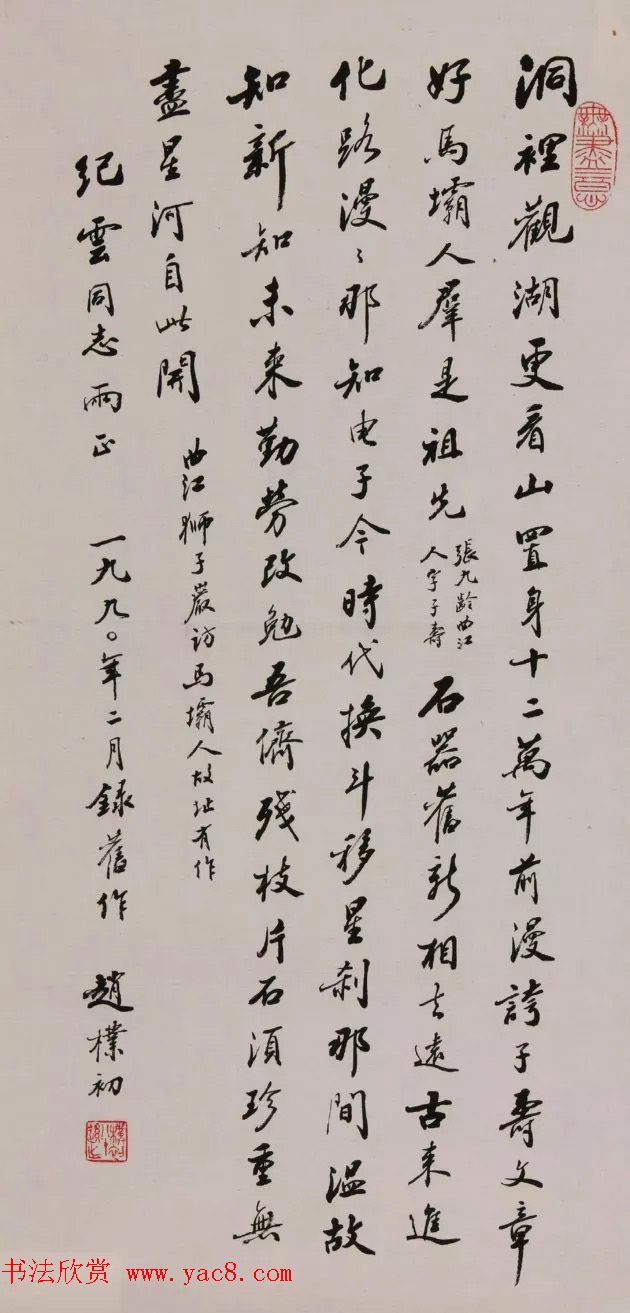 洞裡觀湖更看山置身十二萬年前漫誇子壽文章
好馬壩人羣是祖先張九齡曲江人字子壽石器舊新相去遠古來進
化路漫〻那知电子今時代換斗移星刹那間溫故
知新知未來勤勞改勉吾儕殘枝片石須珍重無
盡星河自此開
曲江狮子嚴访馬壩人故址有作
紀雲同志兩正 一九九〇年二月録舊作 趙樸初
無盡意
书法欣赏 www.yac8.com